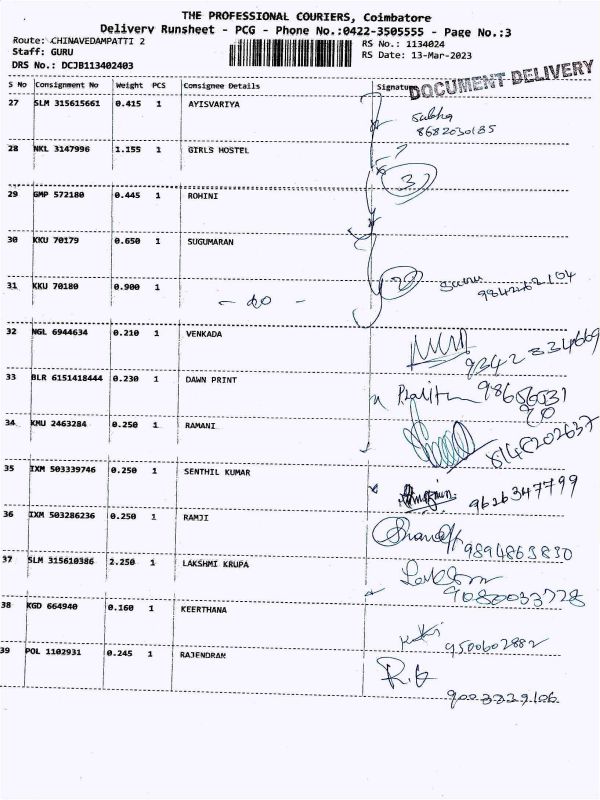 THE PROFESSIONAL COURIERS, Coimbatore
Delivery Runsheet - PCG - Phone No.:0422-3505555 - Page No.:3
Route: CHINAVEDAMPATTI 2
Staff: GURU
DRS No.: DCJB113402403
RS No.: 1134024
RS Date: 13-Mar-2023
DOCUMENT DELIVERY
S No Consignment No Weight PCS Consignee Details Signature
27 SLM 315615661 0.415 1 AYISVARIYA
8682030185
28 NKL 3147996 1.155 1 GIRLS HOSTEL
3
29 GMP 572180 0.445 1 ROHINI
30 KKU 70179 0.650 1 SUGUMARAN
31 KKU 70180 0.900 1 - do - 2
9842262104
32 NGL 6944634 0.210 1 VENKADA
9342334669
33 BLR 6151418444 0.230 1 DAWN PRINT
34 KMU 2463284 0.250 1 RAMANI
35 IXM 503339746 0.250 1 SENTHIL KUMAR 9626347799
36 IXM 503286236 0.250 1 RAMJI
9894863830
37 SLM 315610386 2.250 1 LAKSHMI KRUPA
9080033728
38 KGD 664940 0.160 1 KEERTHANA
9500602882
39 POL 1102931 0.245 1 RAJENDRAN